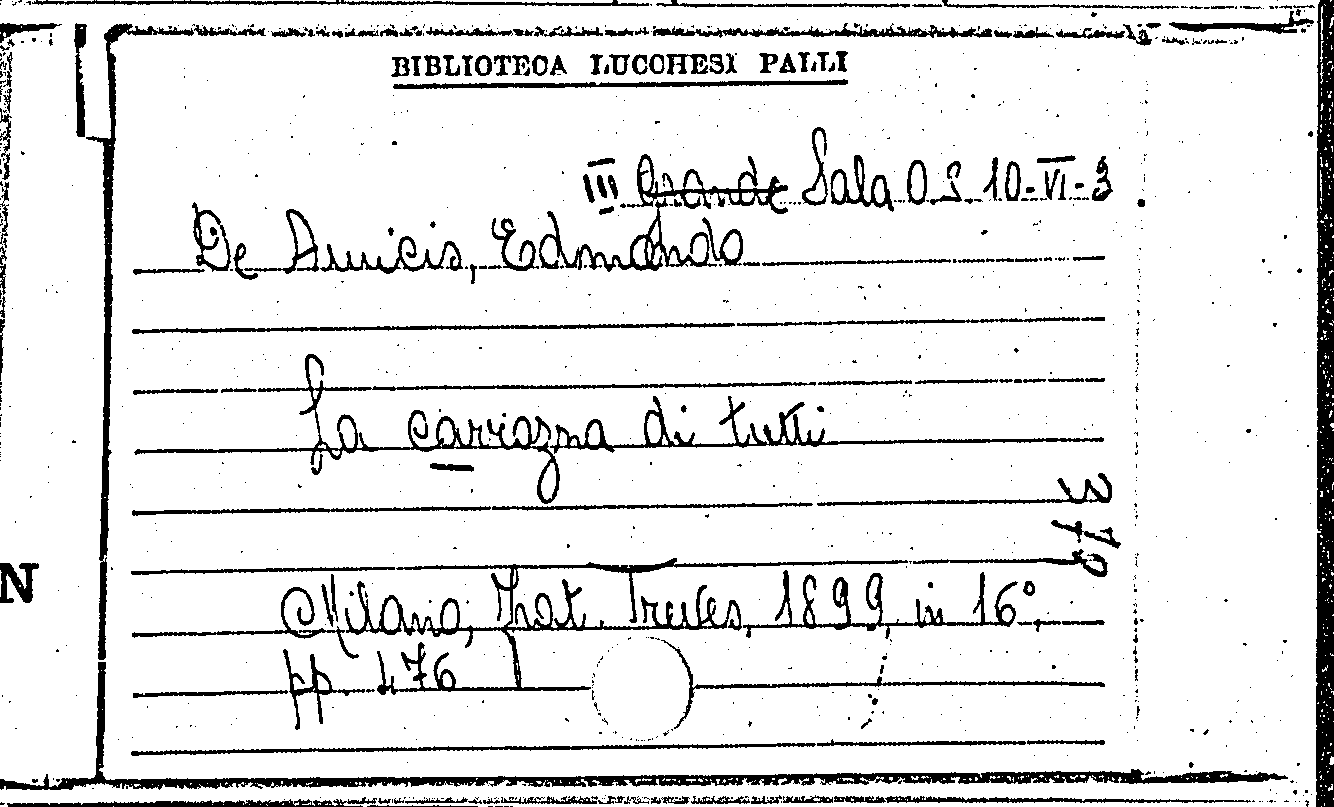 BIBLIOTECA LUCCHESI PALLI
III Grande Sala O S. 10-VI-3
De Amicis, Edmondo
La carrozza di tutti
Milano, Frat. Treves, 1899, in 16°,
pp. 476
N